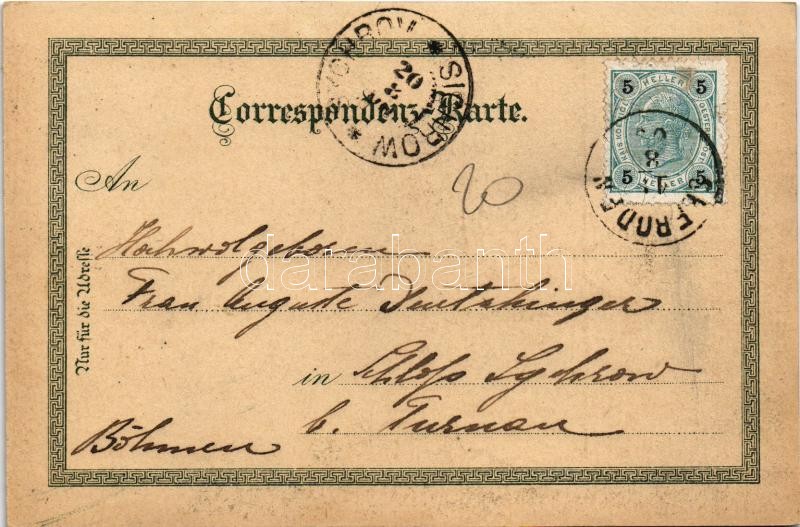 SICHROW * SICHROW *
20
Correspondenz-Karte.
5 HELLER 5
5 HELLER 5
An
20
Hochwolgeboren
Frau Auguste
in Schloss Sychrow
b. Turnau
Böhmen
Nur für die Adresse
darabanth